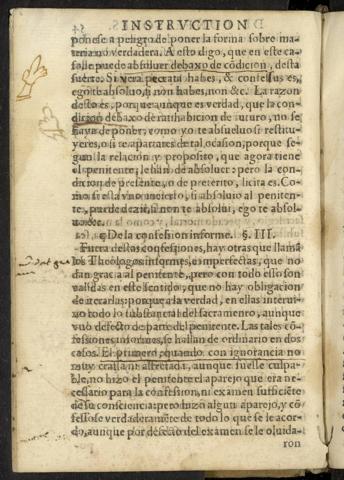 INSTRVCTION
ponese a peligro de poner la forma sobre ma-
teria no verdadera. A esto digo, que en este ca-
so le puede absoluer debaxo de cōdicion, desta
suerte. Si vera peccata habes, & confessus es,
ego te absoluo, si non habes, non &c. La razon
desto es, porque aunque es verdad, que la con-
dicion debaxo de ratihabicion de futuro, no se
haya de poner, como yo te absueluo si restitu-
yeres, o si te apartares de tal ocasion, porque se-
gun la relacion y proposito, que agora tiene
el penitente, le han de absoluer: pero la con-
dicion de presente, o de preterito, licita es. Co-
mo si esta vno incierto, si absoluio al peniten-
te, puede dezir, si non te absolui, ego te absol-
uo &c.
De la confession informe. §. III.
Fuera destas confessiones, hay otras que llamā
los Theologos informes, e imperfectas, que no
dan gracia al penitente, pero con todo esso son
validas en este sentido, que no hay obligacion
de iterarlas: porque a la verdad, en ellas interui-
no todo lo substancial del sacramento, aunque
vuo defecto de parte del penitente. Las tales cō-
fessiones informes, se hallan de ordinario en dos
casos. El primero, quando con ignorancia no
muy crassa ni affectada, aunque fuesse culpa-
ble, no hizo el penitente el aparejo que era ne-
cessario para la confession, ni examen sufficiēte
de su consciencia: pero hizo algun aparejo, y cō
fessose verdaderamēte de todo lo que se le acor-
do, aunque por defecto del examen se le oluida-
ron